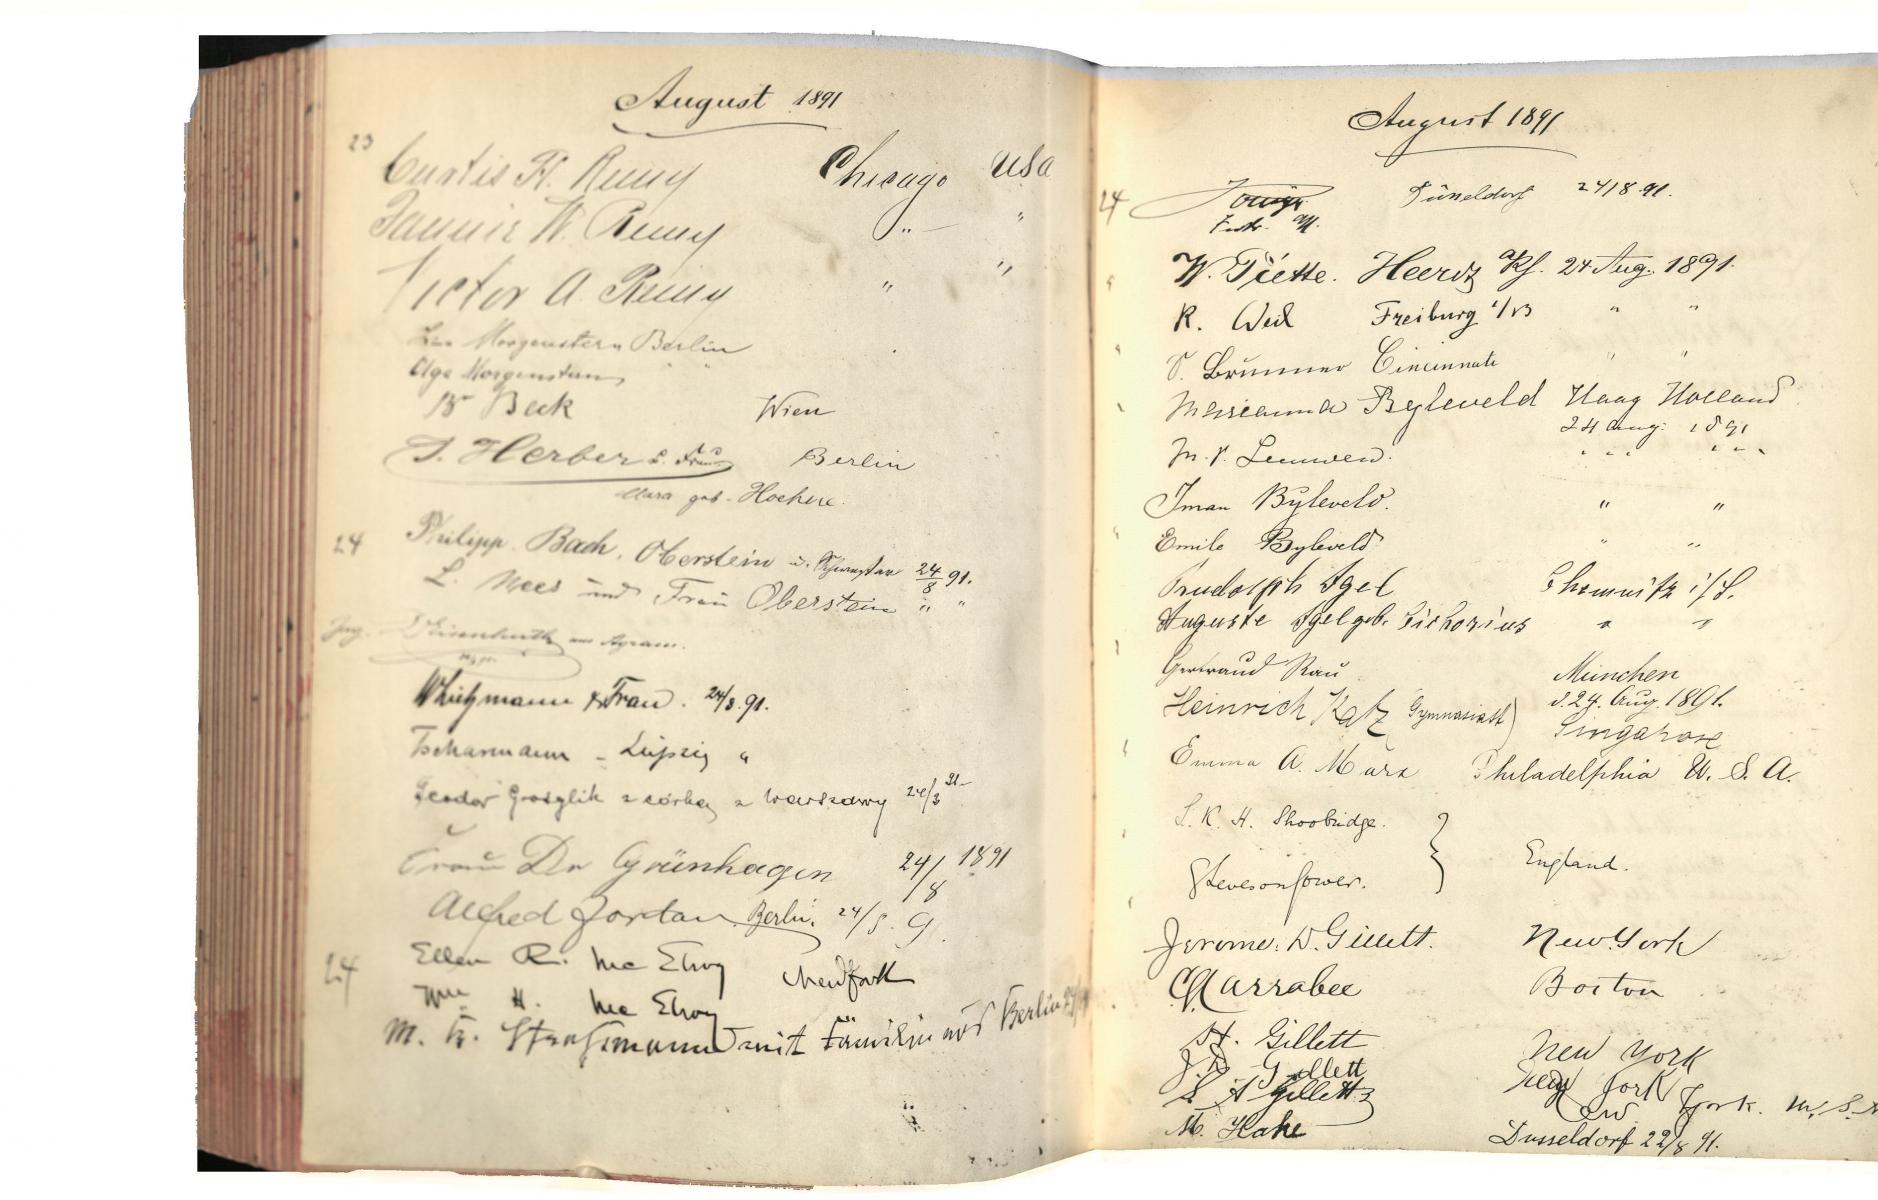 August 1891
23
Curtis H. Remy Chicago USA
Fannie W. Remy " "
Victor A. Remy " "
Lina Morgenstern Berlin
Olga Morgenstern " "
Dr Beck Wien
S. Herber u. Frau Berlin
Clara geb.
24
Philipp Bach, Oberstein u. 24/8 91.
L. Nees und Frau Oberstein " "
aus Agram.
& Frau. 24/8. 91.
Tscharmann - Leipzig "
Teodor z córką z Warszawy 24/8 91
Frau Dr Grünhagen 24/8 1891
Alfred Jordan Berlin. 24/8. 91.
24
Ellen R. Mc Elroy New York
Wm H. Mc Elroy
M. mit Familie aus Berlin
August 1891
24
Düsseldorf 24/8 91.
W. Piette. Heerdt a/Rh. 24 Aug. 1891.
R. Weil Freiburg i/B " "
S. Brunner Cincinnati " "
Marianna Byleveld Haag Holland
24 Aug. 1891
M. v. Leeuwen. " "
Iman Byleveld. " "
Emile Byleveld " "
Rudolph Igel Chemnitz i/S.
Auguste Igel geb. Cichorius " "
Gertraud Rau München
d. 24. Aug. 1891.
Heinrich Katz (Gymnasiast) Singapore
Emma A. Marx Philadelphia U. S. A.
L. K. H. Shoobridge. } England.
Jerome D. Gillett. New York
Larrabee Boston
H. Gillett New York
J. D. Gillett New York
L A Gillett New York. U. S. A
M. Hake Dusseldorf 22/8 91.